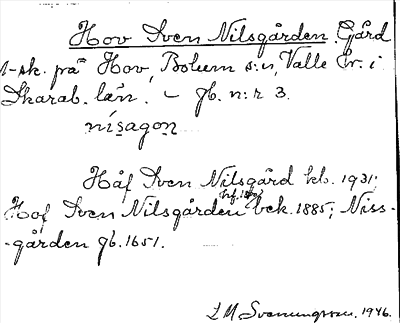 Hov Sven Nilsgården. Gård
1-sk. på Hov, Bolum s:n, Valle hr. i
Skarab. län. – gb. n:r 3.
nísagoṇ
Håf Sven Nilsgård kb. 1931;
Hof Sven Nilsgården bek. 1885; Niss-
-gården gb. 1651.
L M Svanungsson. 1946.